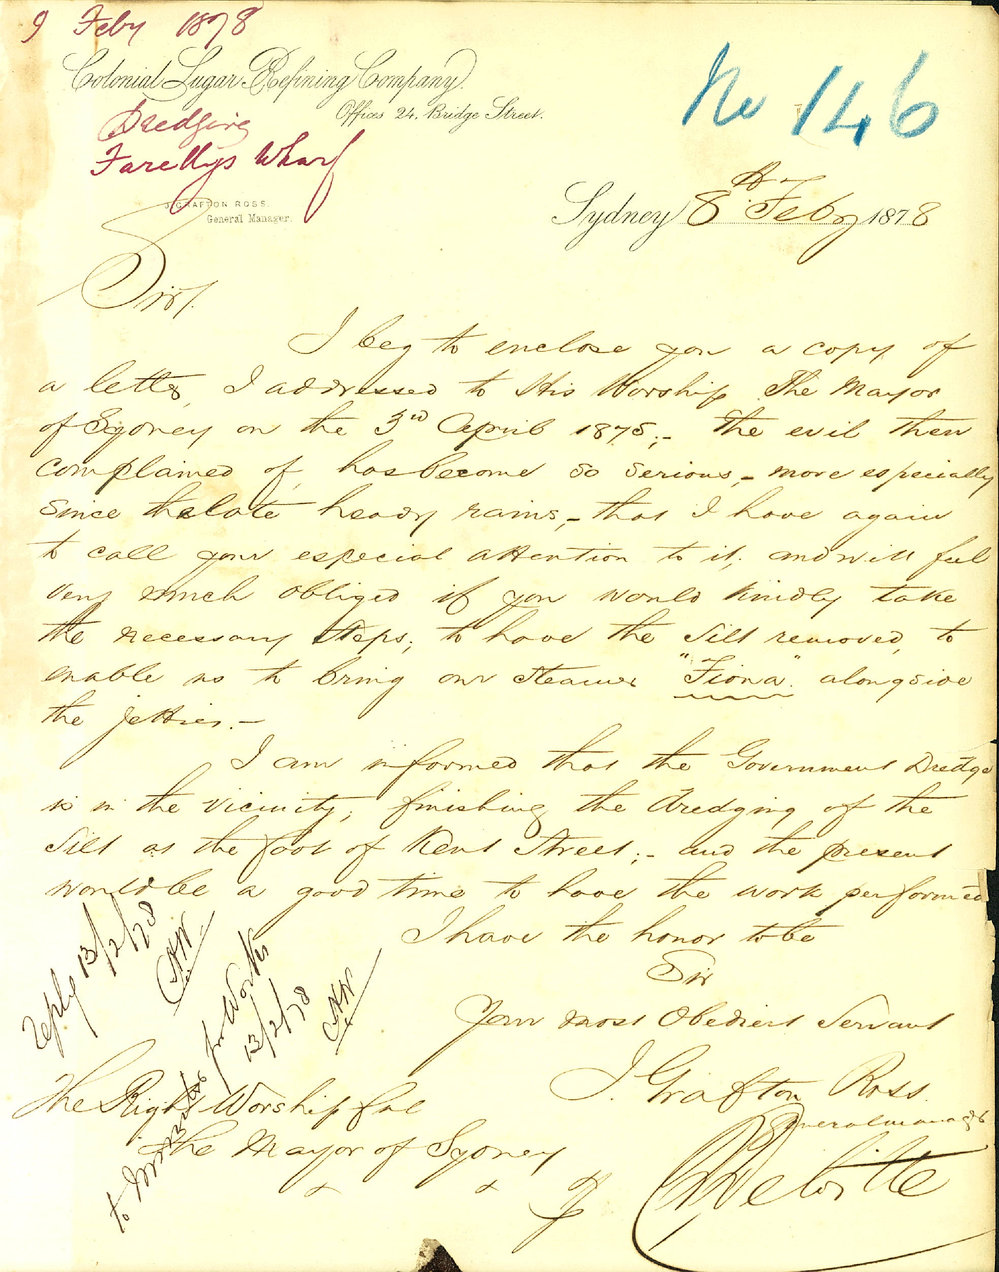 9 Feby 1878
Colonial Sugar Refining Company.
Offices 24, Bridge Street.
No 146
Dredging
Farellys Wharf
J. GRAFTON ROSS.
General Manager.
Sydney 8th Feby 1878
Sir,
I beg to enclose you a copy of
a letter, I addressed to His Worship The Mayor
of Sydney on the 3rd April 1875;- the evil then
complained of, has become so serious,- more especially
since the late heavy rains,- that I have again
to call your especial attention to it, and will feel
very much obliged if you would kindly take
the necessary steps, to have the silt removed, to
enable us to bring our steamer "Fiona" alongside
the jetties.-
I am informed that the Government Dredge
is in the vicinity, finishing the dredging of the
silt at the foot of Kent Street;- and the present
would be a good time to have the work performed
I have the honor to be
Sir
Your most Obedient Servant
J. Grafton Ross.
General Manager
The Right Worshipful
The Mayor of Sydney
reply 13/2/78
for Works
13/2/78
to